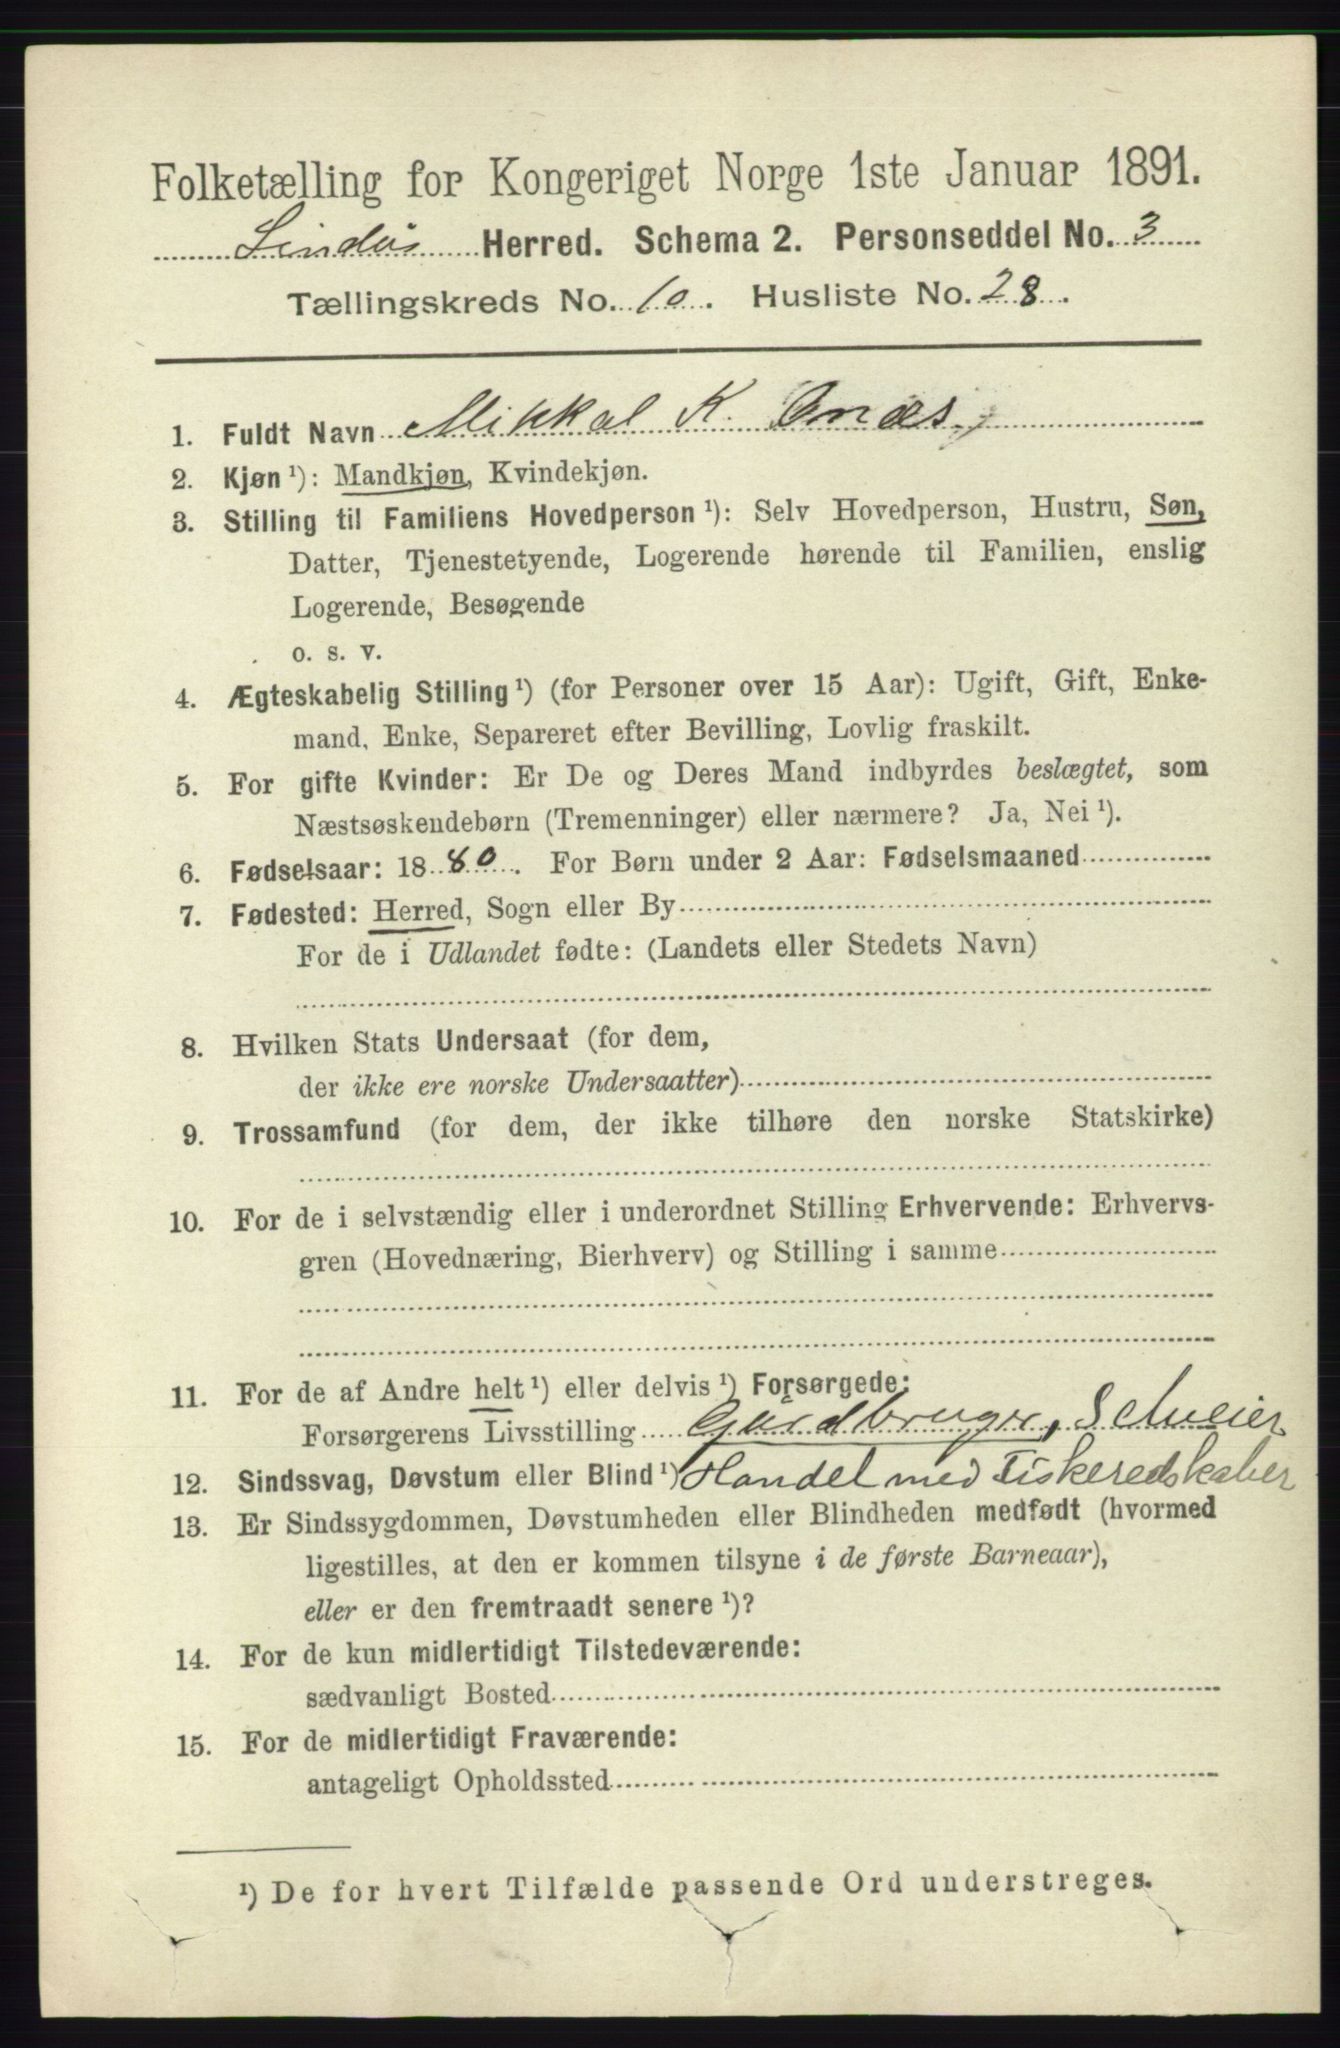 Folketælling for Kongeriget Norge 1ste Januar 1891.
Lindås Herred. Schema 2. Personseddel No. 3
Tællingskreds No. 10. Husliste No. 28.
1. Fuldt Navn Mikkal K. Onæs,
2. Kjøn ¹): Mandkjøn, Kvindekjøn.
3. Stilling til Familiens Hovedperson ¹): Selv Hovedperson, Hustru, Søn,
Datter, Tjenestetyende, Logerende hørende til Familien, enslig
Logerende, Besøgende
o. s. v.
4. Ægteskabelig Stilling ¹) (for Personer over 15 Aar): Ugift, Gift, Enke-
mand, Enke, Separeret efter Bevilling, Lovlig fraskilt.
5. For gifte Kvinder: Er De og Deres Mand indbyrdes beslægtet, som
Næstsøskendebørn (Tremenninger) eller nærmere? Ja, Nei ¹).
6. Fødselsaar: 1880. For Børn under 2 Aar: Fødselsmaaned
7. Fødested: Herred, Sogn eller By
For de i Udlandet fødte: (Landets eller Stedets Navn)
8. Hvilken Stats Undersaat (for dem,
der ikke ere norske Undersaatter)
9. Trossamfund (for dem, der ikke tilhøre den norske Statskirke)
10. For de i selvstændig eller i underordnet Stilling Erhvervende: Erhvervs-
gren (Hovednæring, Bierhverv) og Stilling i samme
11. For de af Andre helt ¹) eller delvis ¹) Forsørgede:
Forsørgerens Livsstilling Gårdbruger, Selveier
12. Sindssvag, Døvstum eller Blind ¹) Handel med Fiskeredskaber
13. Er Sindssygdommen, Døvstumheden eller Blindheden medfødt (hvormed
ligestilles, at den er kommen tilsyne i de første Barneaar),
eller er den fremtraadt senere ¹)?
14. For de kun midlertidigt Tilstedeværende:
sædvanligt Bosted
15. For de midlertidigt Fraværende:
antageligt Opholdssted
¹) De for hvert Tilfælde passende Ord understreges.